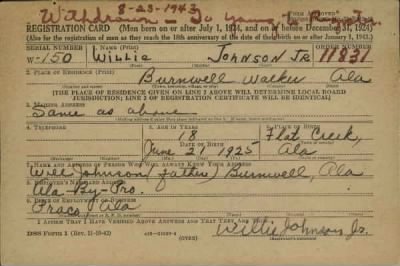 8-23-1943
Withdrawn - To Young to Reg. Jr.
REGISTRATION CARD (Men born on or after July 1, 1924, and on or before December 31, 1924)
(Also for the registration of men as they reach the 18th anniversary of the date of their birth on or after January 1, 1943.)
SERIAL NUMBER 1. NAME (Print) ORDER NUMBER
W-150 Willie Johnson Jr 11831
2. PLACE OF RESIDENCE (Print)
Burnwell Walker Ala
[THE PLACE OF RESIDENCE GIVEN ON LINE 2 ABOVE WILL DETERMINE LOCAL BOARD
JURISDICTION; LINE 2 OF REGISTRATION CERTIFICATE WILL BE IDENTICAL]
3. MAILING ADDRESS
Same as above
4. TELEPHONE 5. AGE IN YEARS 6. PLACE OF BIRTH
18 Flat Creek,
DATE OF BIRTH
June 21 1925 Ala
7. NAME AND ADDRESS OF PERSON WHO WILL ALWAYS KNOW YOUR ADDRESS
Will Johnson (father) Burnwell, Ala
8. EMPLOYER'S NAME AND ADDRESS
Ala-By-Pro.
9. PLACE OF EMPLOYMENT OR BUSINESS
Praco Ala
I AFFIRM THAT I HAVE VERIFIED ABOVE ANSWERS AND THAT THEY ARE TRUE.
DSS Form 1 (Rev. 11-16-42) (OVER) Willie Johnson Jr.
(Registrant's signature)